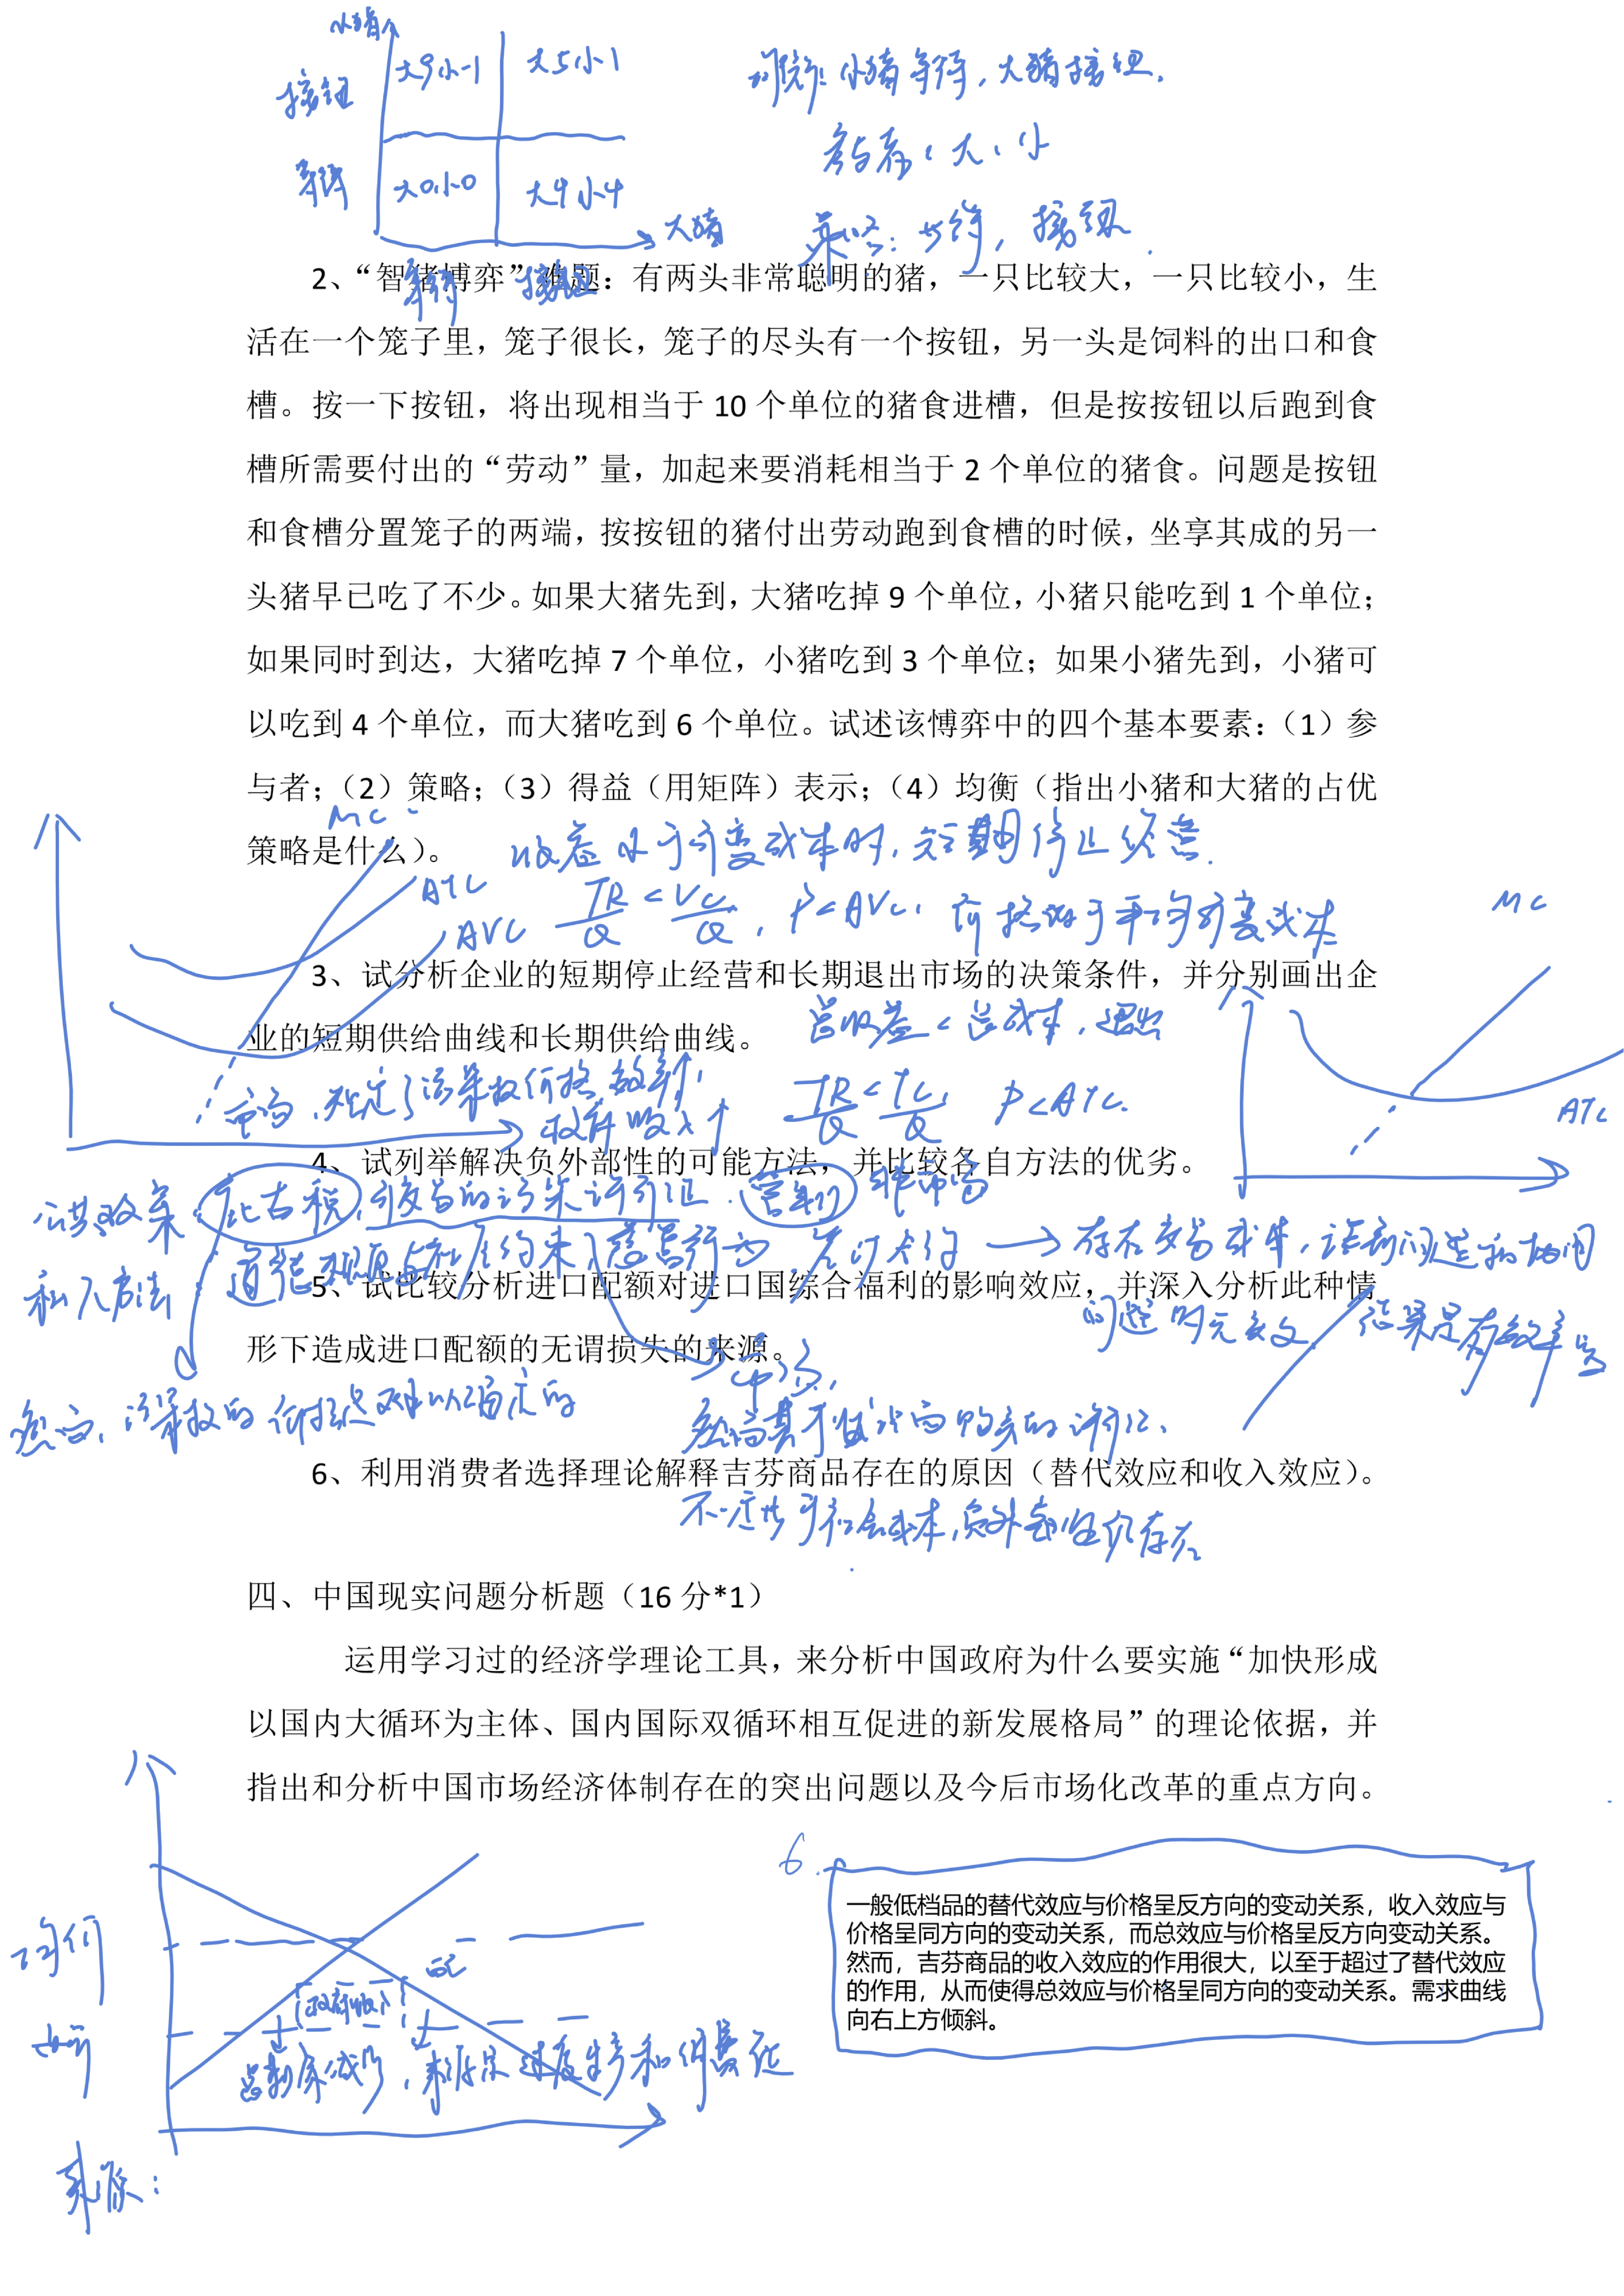 小猪
按钮 大9小-1 大5小1
等待 大0小0 大4小4
大猪
等待 按钮
均衡：小猪等待，大猪按钮.
参与者：大、小
策略：等待，按钮.
2、“智猪博弈”难题：有两头非常聪明的猪，一只比较大，一只比较小，生
活在一个笼子里，笼子很长，笼子的尽头有一个按钮，另一头是饲料的出口和食
槽。按一下按钮，将出现相当于 10 个单位的猪食进槽，但是按按钮以后跑到食
槽所需要付出的“劳动”量，加起来要消耗相当于 2 个单位的猪食。问题是按钮
和食槽分置笼子的两端，按按钮的猪付出劳动跑到食槽的时候，坐享其成的另一
头猪早已吃了不少。如果大猪先到，大猪吃掉 9 个单位，小猪只能吃到 1 个单位；
如果同时到达，大猪吃掉 7 个单位，小猪吃到 3 个单位；如果小猪先到，小猪可
以吃到 4 个单位，而大猪吃到 6 个单位。试述该愽弈中的四个基本要素：（1）参
与者；（2）策略；（3）得益（用矩阵）表示；（4）均衡（指出小猪和大猪的占优
策略是什么）。
收益小于可变成本时，短期停止经营.
MC
ATC
AVC
TR/Q < VC/Q , P<AVC, 价格低于平均可变成本
MC
3、试分析企业的短期停止经营和长期退出市场的决策条件，并分别画出企
业的短期供给曲线和长期供给曲线。
总收益 < 总成本，退出
TR/Q < TC/Q , P<ATC.
ATC
政府收入↑
4、试列举解决负外部性的可能方法，并比较各自方法的优劣。
公共政策：庇古税，可交易的污染许可证. 管制
私人方法：道德规范与社会约束，慈善行为 → 存在交易成本，
5、试比较分析进口配额对进口国综合福利的影响效应，并深入分析此种情
形下造成进口配额的无谓损失的来源。
6、利用消费者选择理论解释吉芬商品存在的原因（替代效应和收入效应）。
不一定等于社会成本，负外部性仍存在
四、中国现实问题分析题（16 分*1）
运用学习过的经济学理论工具，来分析中国政府为什么要实施“加快形成
以国内大循环为主体、国内国际双循环相互促进的新发展格局”的理论依据，并
指出和分析中国市场经济体制存在的突出问题以及今后市场化改革的重点方向。
政府收入
总剩余减少，来源是过度生产和消费低
来源：
6.
一般低档品的替代效应与价格呈反方向的变动关系，收入效应与
价格呈同方向的变动关系，而总效应与价格呈反方向变动关系。
然而，吉芬商品的收入效应的作用很大，以至于超过了替代效应
的作用，从而使得总效应与价格呈同方向的变动关系。需求曲线
向右上方倾斜。